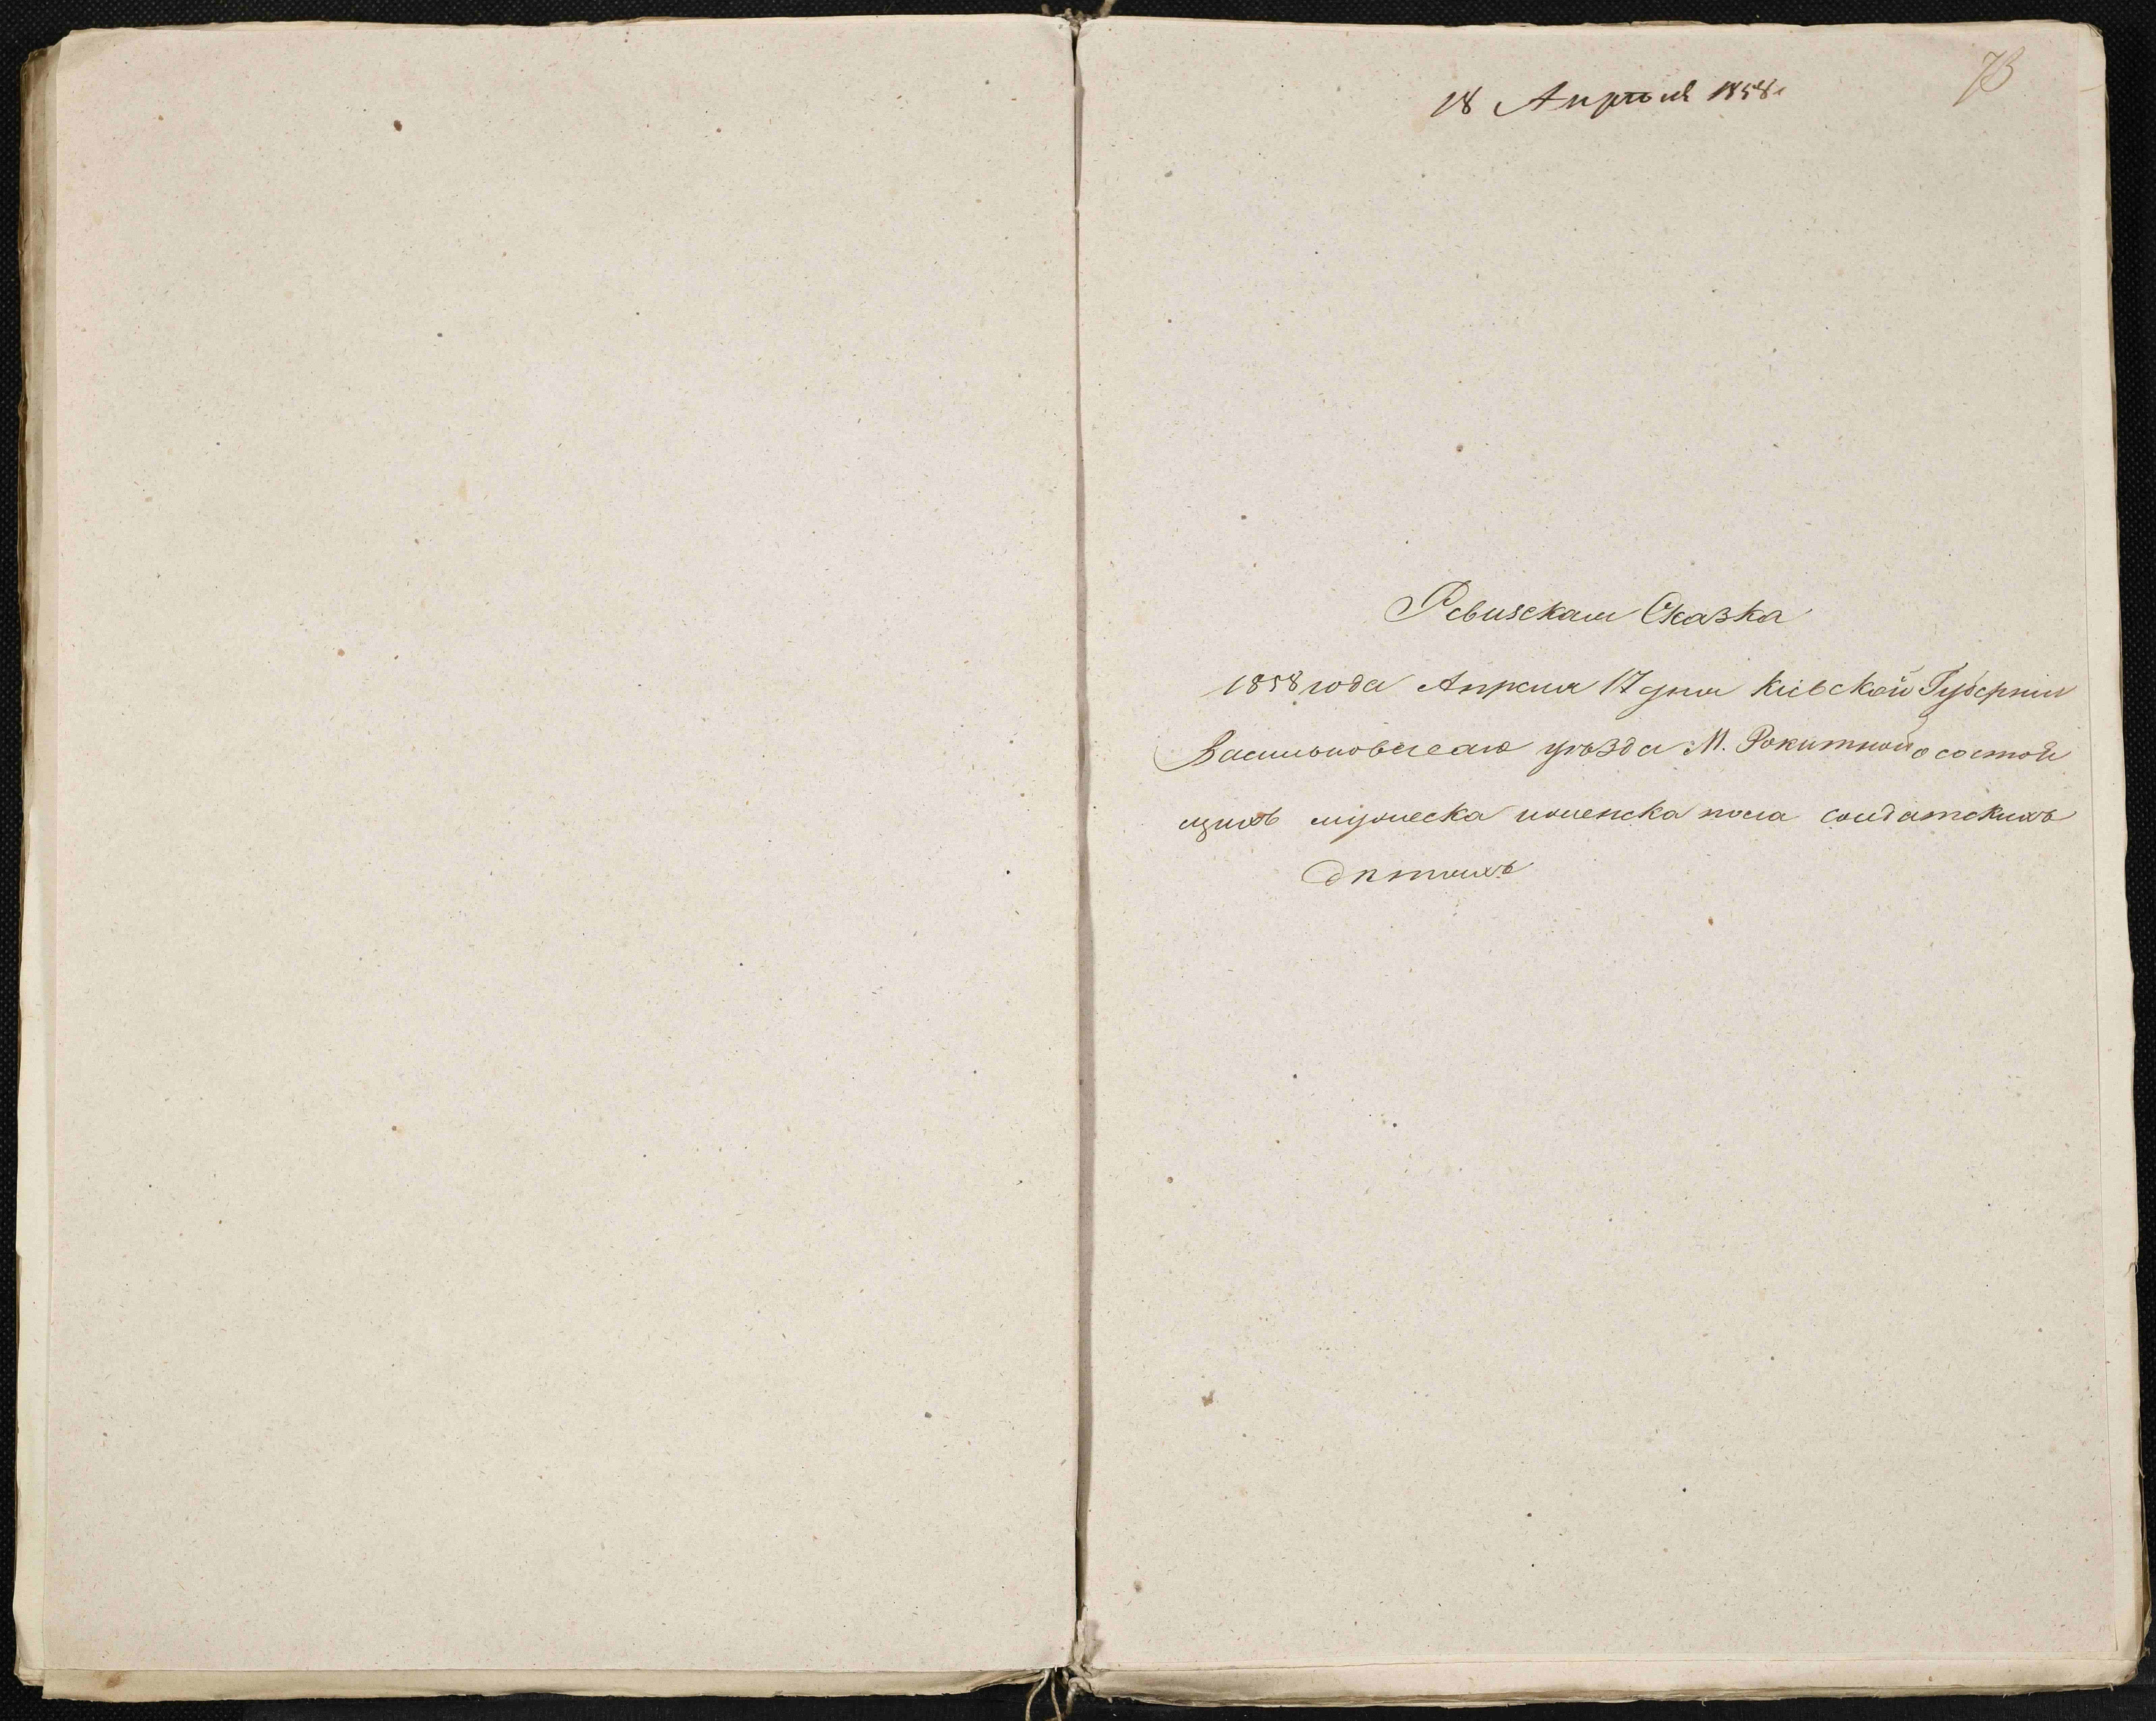 73
18 Апрѣля 1858.
Ревизская Сказка
1858 года Апреля 17 дня Кіевской Губерніи
Васильковскаго уѣзда М. Рокитной о состоя
щихъ мужеска иженска пола солдатскихъ
дѣтяхъ